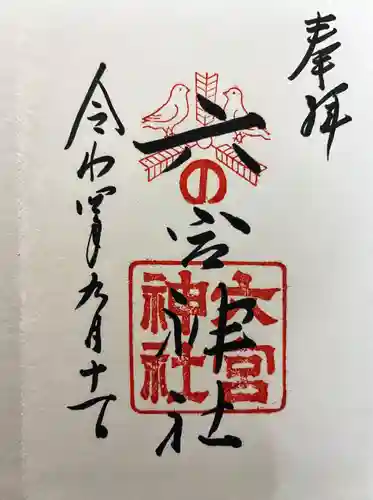 奉拝
六の宮神社
六宮
神社
令和四年九月十一日